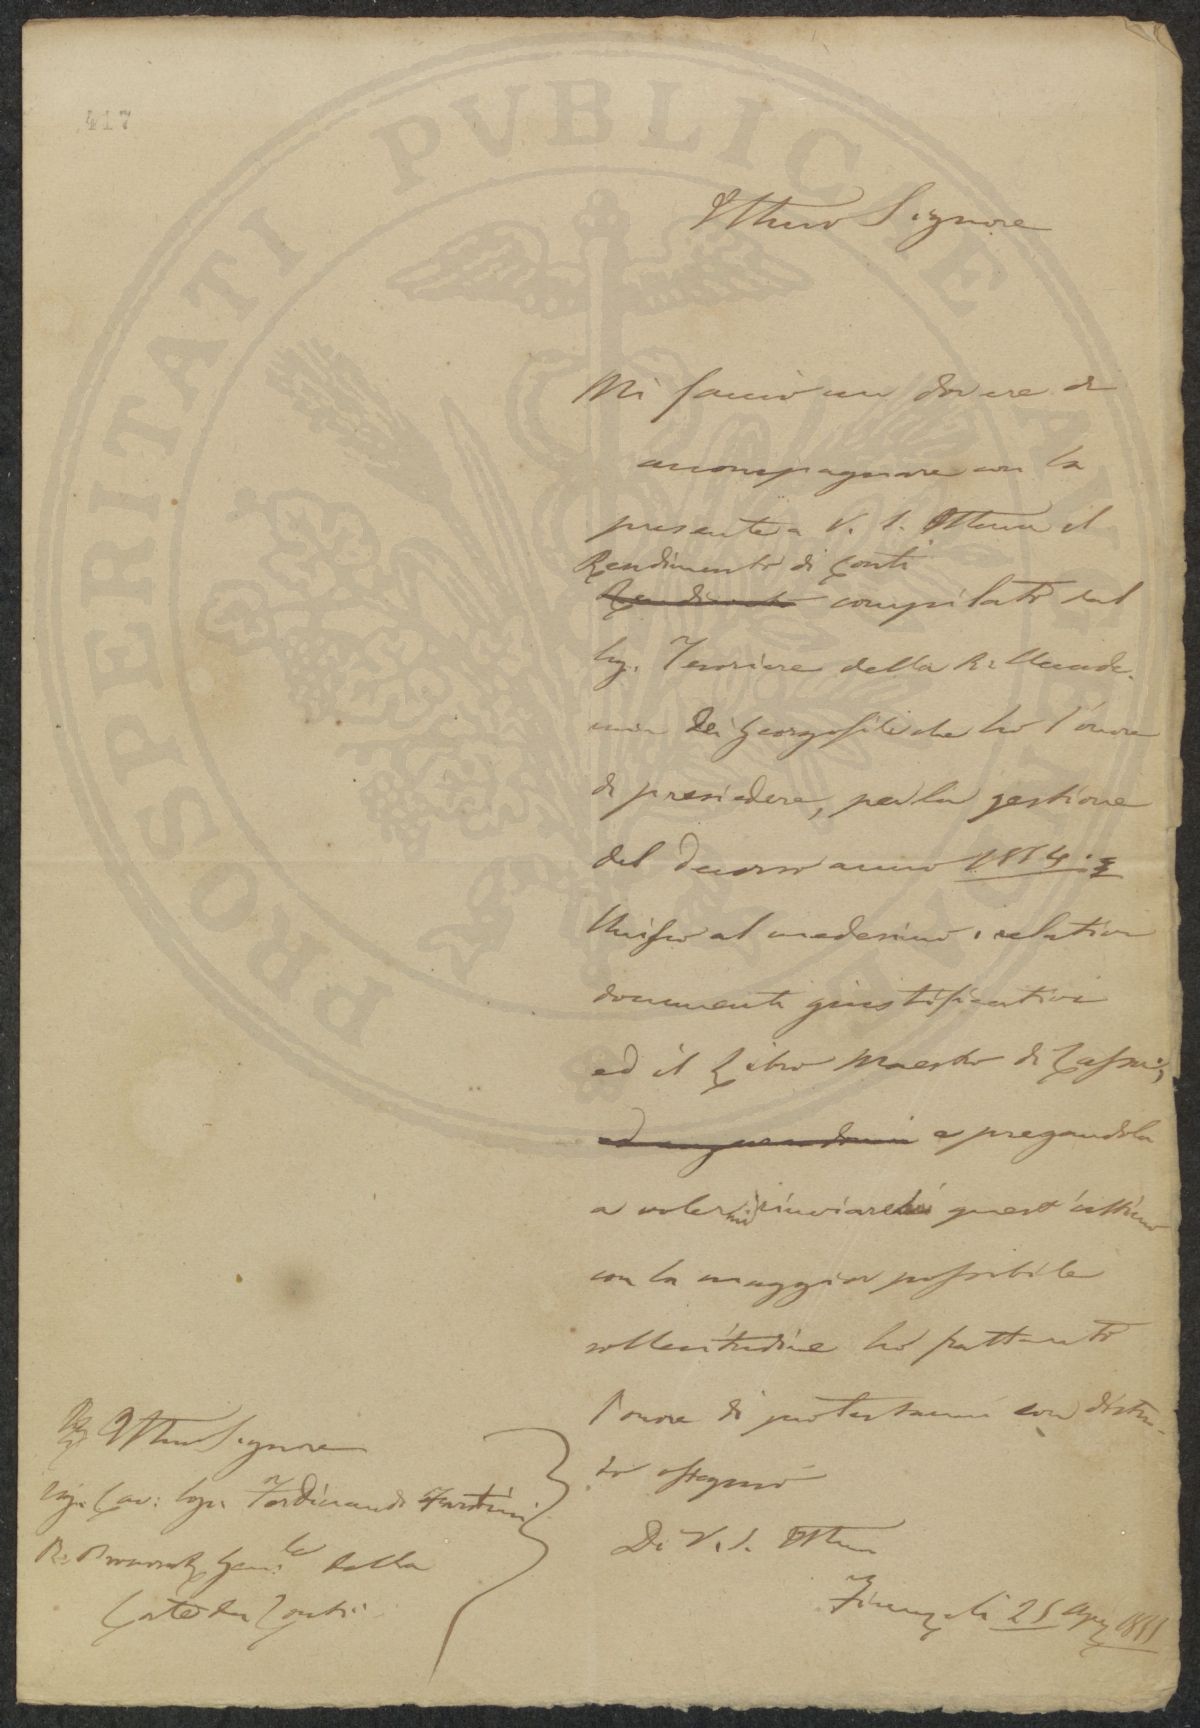 417
PROSPERITATI PVBLICAE AVGENDAE
Ill.mo Signore
Mi faccio un dovere di
accompagnare con la
presente a V. S. Ill.ma il
Rendimento di Conti
compilato dal
Sig. Tesoriere della R. Accade-
mia dei Georgofili che ho l'onore
di presiedere, per la gestione
del decorso anno 1854.
Unisco al medesimo i relativi
documenti giustificativi
ed il Libro Maestro di Cassa,
e pregandola
a volermi rinviare quest'ultimo
con la maggior possibile
sollecitudine ho frattanto
l'onore di protestarmi con distin-
to ossequio
Di V. S. Ill.ma
Firenze li 25 1855
Ill.mo Signore
Sig. Cav: Ferdinando
R. Gen.le della
Corte dei Conti